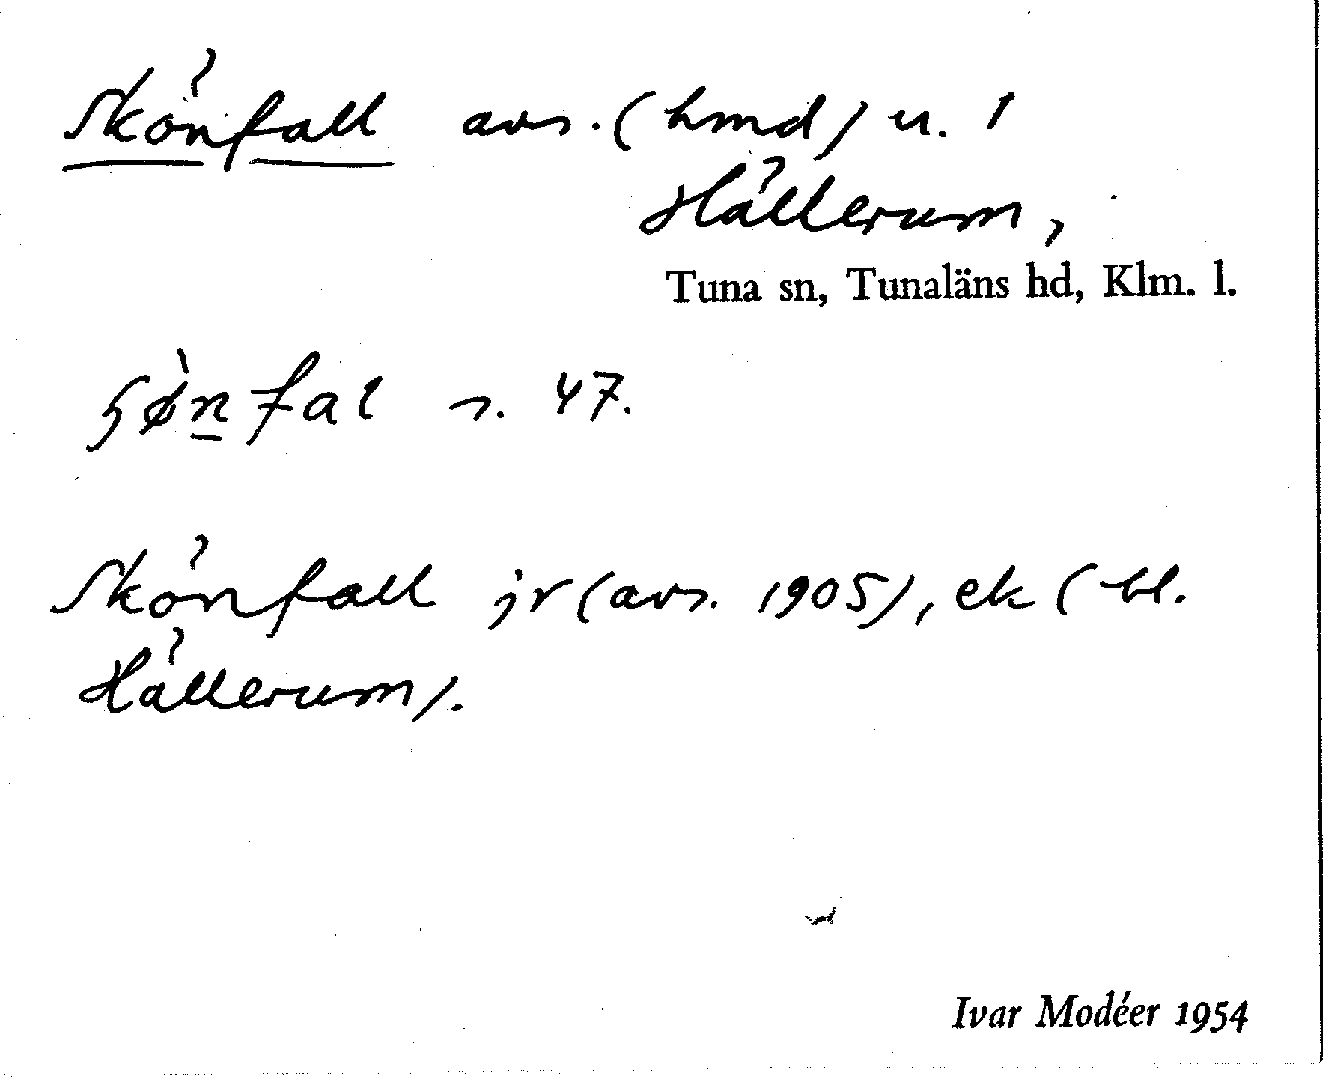 Skönfall avs. (hmd) u. 1
Hällerum,
Tuna sn, Tunaläns hd, Klm. l.
s. 47.
Skönfall jr (avs. 1905), ek (bl.
Hällerum).
Ivar Modéer 1954